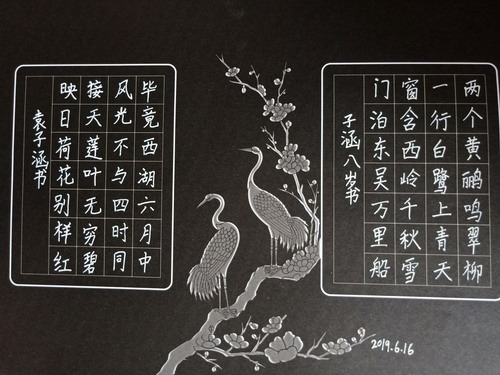 两个黄鹂鸣翠柳
一行白鹭上青天
窗含西岭千秋雪
门泊东吴万里船
子涵八岁书
毕竟西湖六月中
风光不与四时同
接天莲叶无穷碧
映日荷花别样红
袁子涵书
2019.6.16